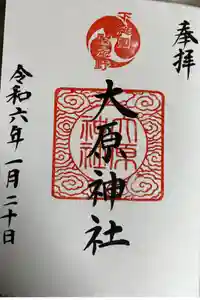 奉拝
大原神社
大原
神社
令和六年一月二十日